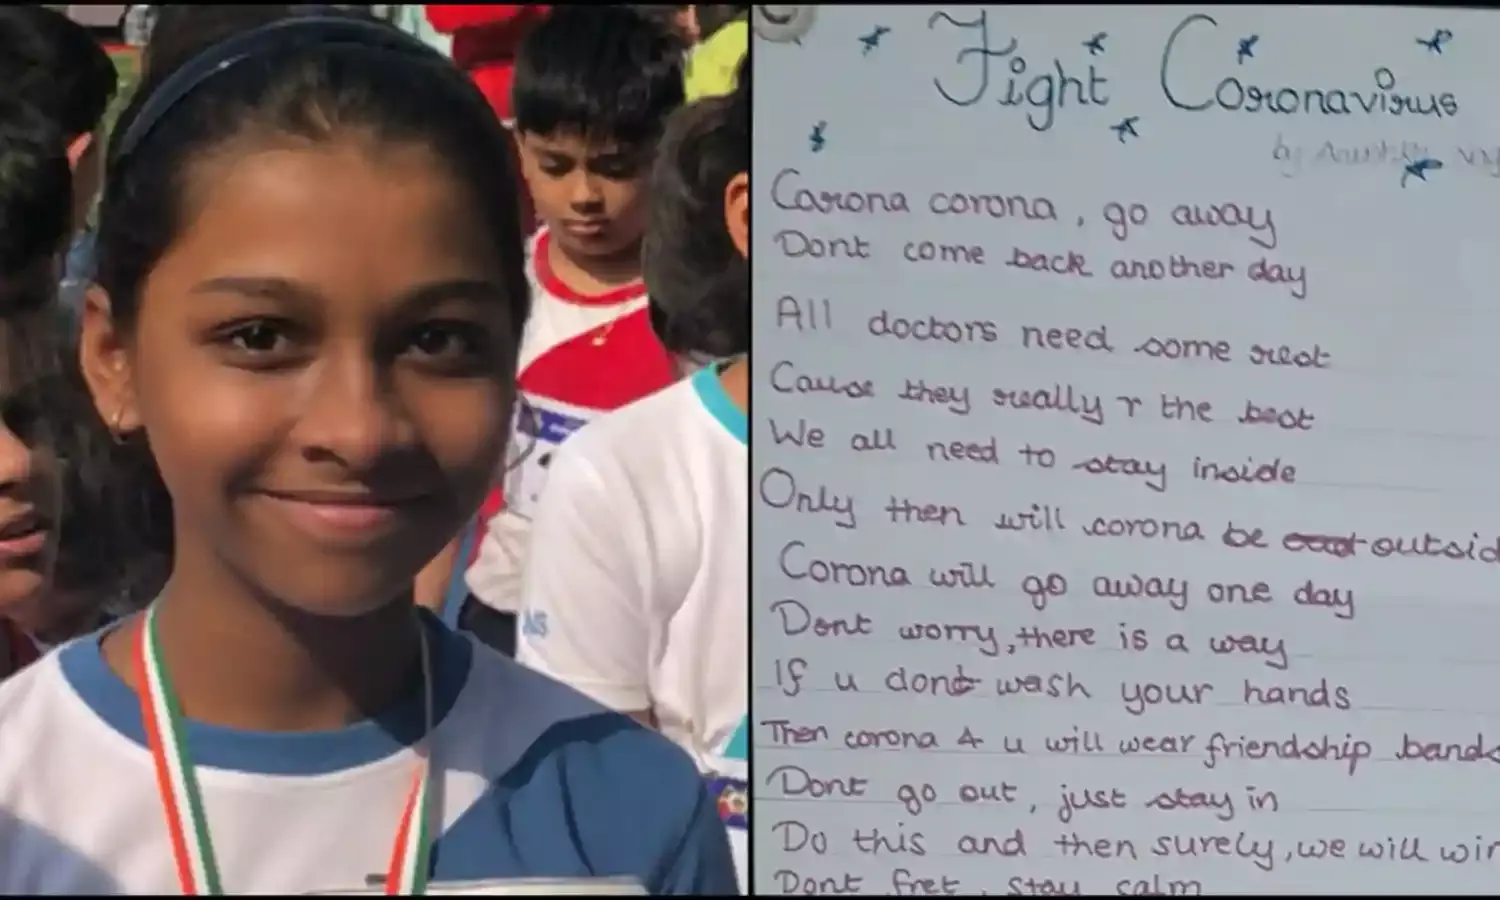 Fight Coronavirus
by
Carona corona, go away
Dont come back another day
All doctors need some rest
Cause they really r the best
We all need to stay inside
Only then will corona be outsid
Corona will go away one day
Dont worry, there is a way
If u dont wash your hands
Then corona & u will wear friendship bands
Dont go out, just stay in
Do this and then surely, we will win
Dont fret, stay calm